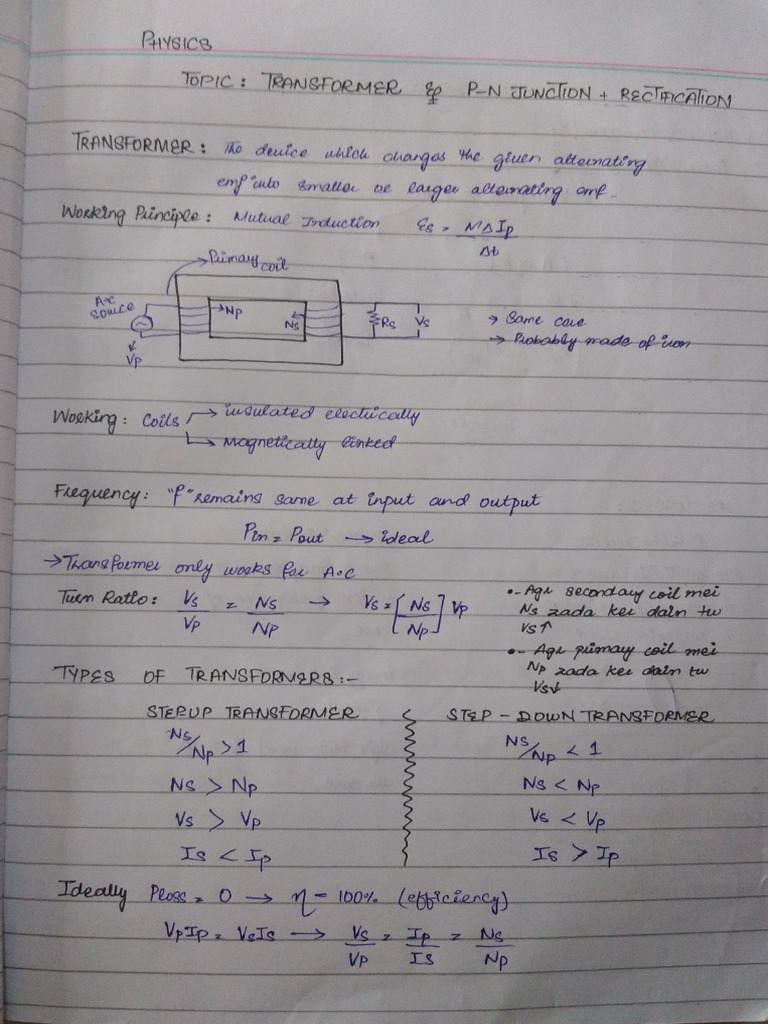 PHYSICS
TOPIC: TRANSFORMER & P-N JUNCTION + RECTIFICATION
TRANSFORMER: The device which changes the given alternating
emf into smaller or larger alternating emf.
Working Principle: Mutual Induction Ɛs = MΔIp
Δt
Primary coil
A.C
source
Np
Ns
Rs
Vs
Vp
→ Same core
→ Probably made of iron
Working: Coils → insulated electrically
→ magnetically linked
Frequency: "f" remains same at input and output
Pin = Pout → ideal
→ Transformer only works for A.C
Turn Ratio: Vs/Vp = Ns/Np → Vs = [Ns/Np] Vp
•- Agr secondary coil mei
Ns zada ker dain tw
Vs↑
•- Agr primary coil mei
Np zada ker dain tw
Vs↓
TYPES OF TRANSFORMERS:-
STEPUP TRANSFORMER
Ns/Np > 1
Ns > Np
Vs > Vp
Is < Ip
STEP-DOWN TRANSFORMER
Ns/Np < 1
Ns < Np
Vs < Vp
Is > Ip
Ideally Ploss = 0 → η = 100% (efficiency)
VpIp = VsIs → Vs/Vp = Ip/Is = Ns/Np